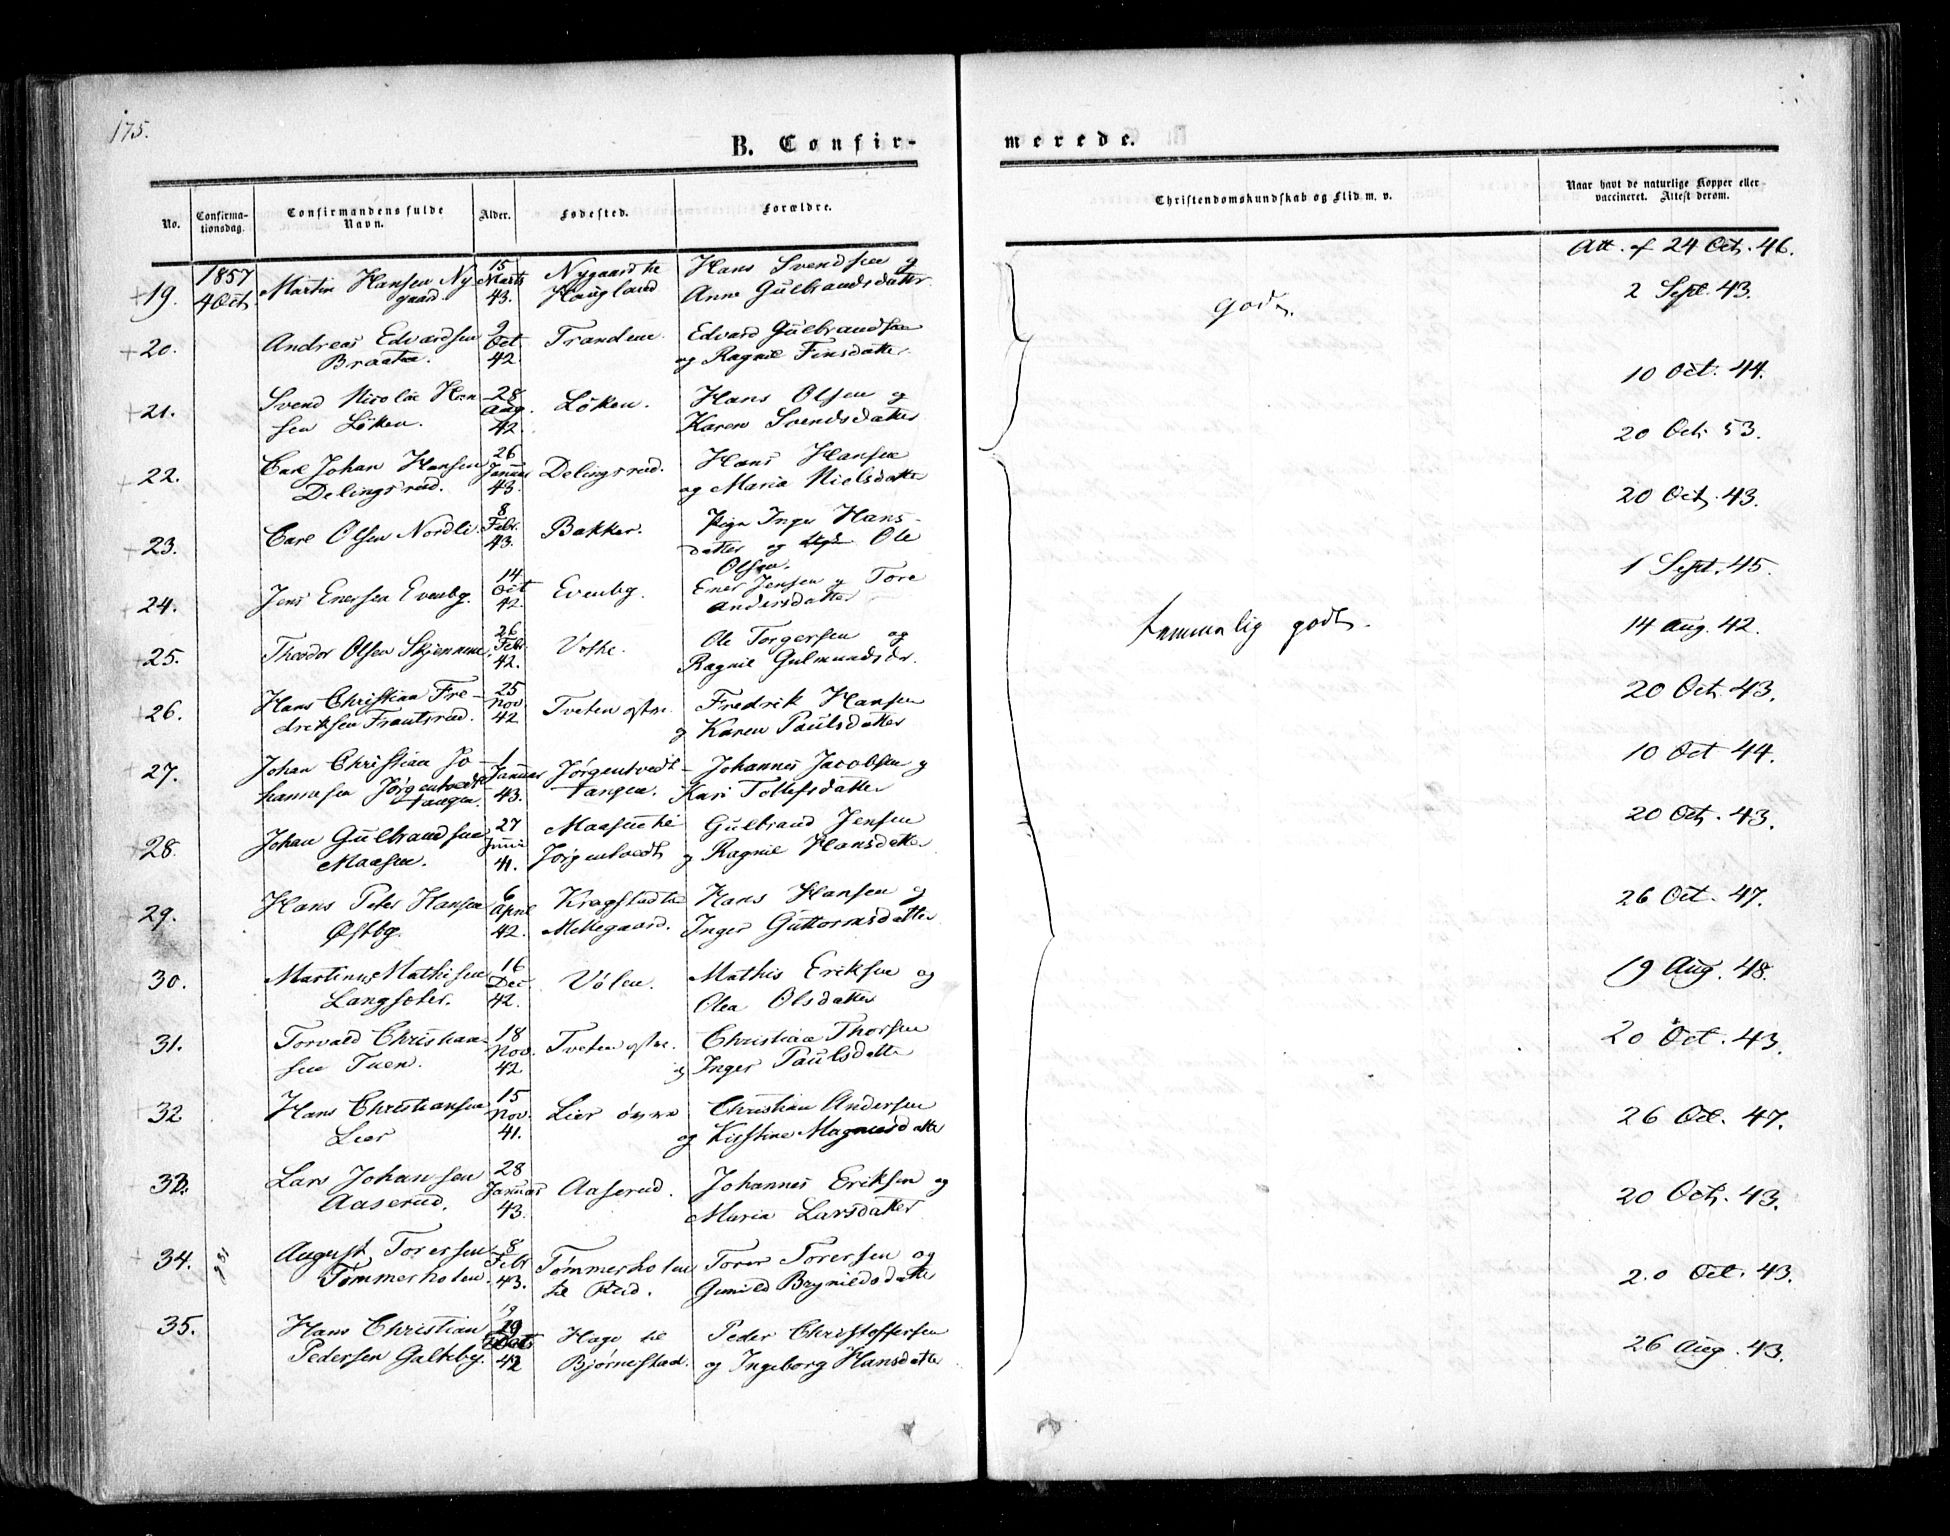 175.
B. Confir-
merede.
No.
Confirma-
tionsdag.
Confirmandens fulde
Navn.
Alder.
Fødested.
Forældre.
Christendomskundskab og Flid m. v.
Naar havt de naturlige Kopper eller
vaccineret. Attest derom.
19. 1857
4 Oct.
Martin Hansen Ny-
gaard
15
Marts
43.
Nygaard
Haugland
Hans Svendsen og
Anne Gulbrandsdatter
Att. af 24 Oct. 46.
20. Andreas Edvardsen
Braaten.
9
Oct
42.
Tranden
Edvard Gulbrandsen
og Ragnil Finsdatter
2 Sept. 43.
21. Svend Nicolai Han-
sen Løken.
28
Aug.
42.
Løken.
Hans Olsen og
Karen Svendsdatter
10 Oct. 44.
godt.
22. Carl Johan Hansen
Delingsrud.
26
Januar
43.
Delingsrud.
Hans Hansen
og Maria Nielsdatter
20 Oct. 53.
23. Carl Olsen Nordli
8
Febr.
43.
Bakker.
Pige Inger Hans-
datter og Ole
Olsen.
20 Oct. 43.
24. Jens Enersen Evenbg.
14
Oct
42.
Evenbg.
Ener Jensen og Tore
Andersdatter
1 Sept. 45.
25. Theodor Olsen Skjennum
26
Febr
42.
Ole Torgersen og
Ragnil Gulmundsdr.
14 Aug. 42.
26. Hans Christian Fre-
driksen Frantsrud.
25
Nov.
42
Tveten østre
Fredrik Hansen
og Karen Paulsdatter
20 Oct. 43.
27. Johan Christian Jo-
hannesen Jørgentvedt
tangen.
1
Januar
43.
Jørgentvedt-
tangen.
Johannes Jacobsen og
Kari Tollefsdatter
10 Oct 44.
28. Johan Gulbrandsen
Maasen.
27
Juni
41.
Maasen til
Jørgentvedt
Gulbrand Jensen
og Ragnil Hansdatter
20 Oct. 43.
29. Hans Peter Hansen
Østbg.
6
April
42.
Kragstad
Mellegaard.
Hans Hansen og
Inger Guttormsdatter
26 Oct. 47.
30. Martinus Mathisen
Langseter.
16
Dec
42.
Vølen.
Mathis Eriksen og
Olea Olsdatter
19 Aug. 48.
31. Torvald Christian-
sen Tuen.
18
Nov.
42
Tveten østre.
Christian Thorsen
og Inger Paulsdatter
20 Oct. 43.
32 Hans Christiansen
Lier
15
Nov.
41.
Lier øvre
Christian Andersen
og Kirstine Magnusdatter
26 Oct. 47.
33. Lars Johansen
Aaserud.
28
Januar
43.
Aaserud.
Johannes Eriksen og
Maria Larsdatter
20 Oct. 43.
34. August Torersen
Tømmerholen.
8
Febr
43.
Tømmerholen
til Rud.
Torer Torersen og
Gunild Brynildsdatter
20 Oct. 43.
35. Hans Christian
Pedersen Galteby.
19
Oct
42
Hage til
Bjørnestad.
Peder Christoffersen
og Ingeborg Hansdatter
26 Aug. 43.
temmelig godt.